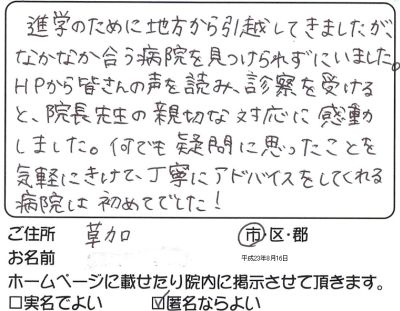 進学のために地方から引越してきましたが、
なかなか合う病院を見つけられずにいました。
HPから皆さんの声を読み、診察を受ける
と、院長先生の親切な対応に感動
しました。何でも疑問に思ったことを
気軽にきけて、丁寧にアドバイスをしてくれる
病院は初めてでした!
ご住所 草加 市・区・郡
お名前 平成23年8月16日
ホームページに載せたり院内に掲示させて頂きます。
□実名でよい ☑匿名ならよい